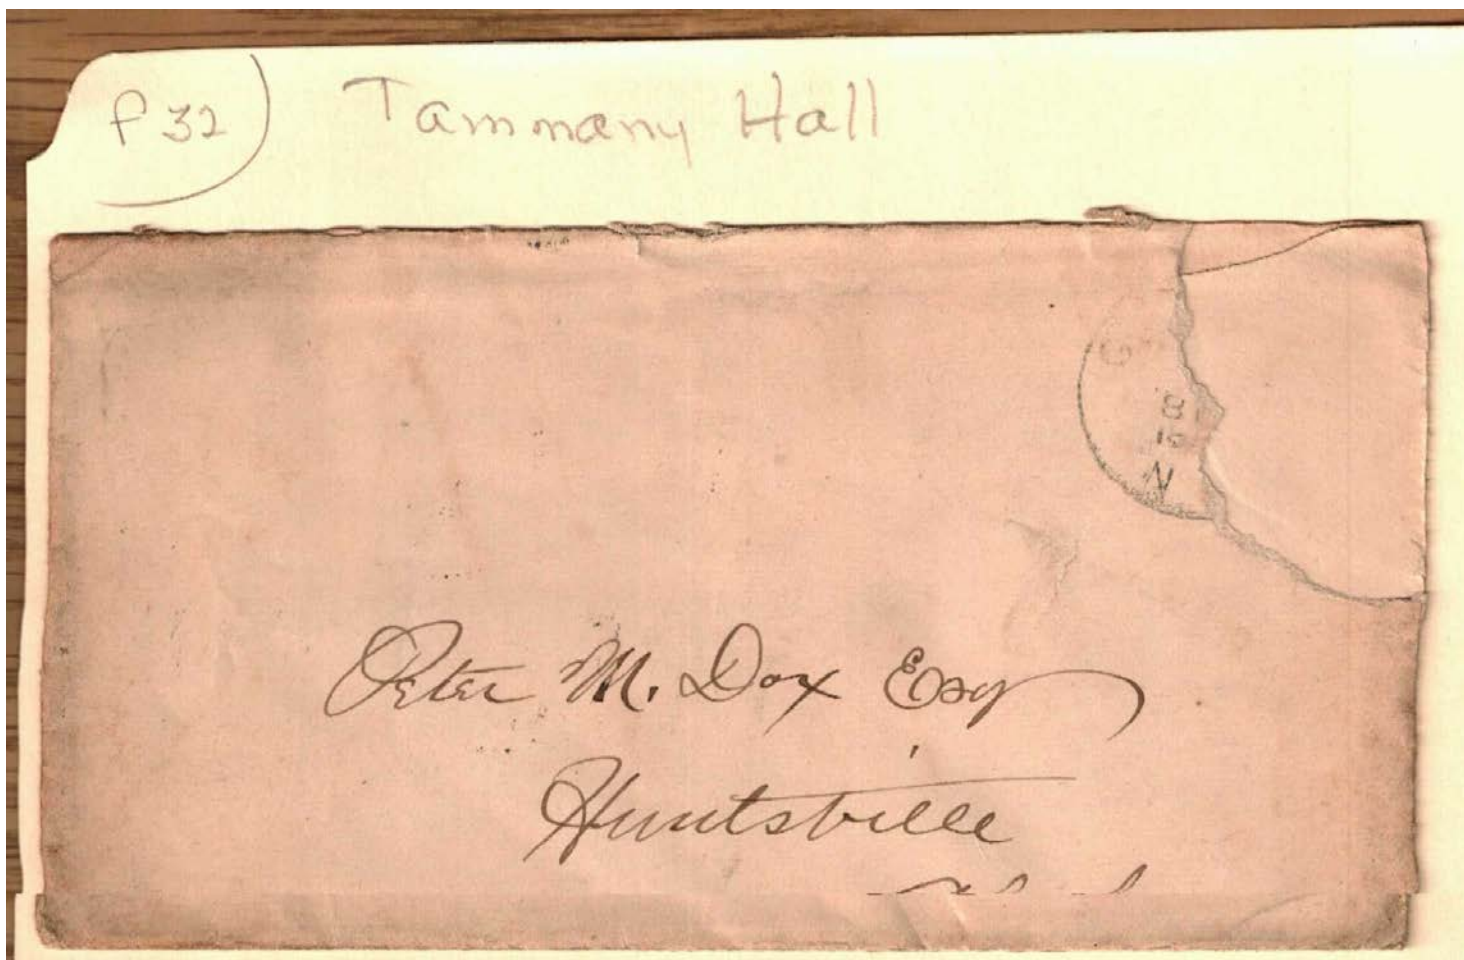 P 32) Tammany Hall
G
18
N
Peter M. Dox Esq
Huntsville